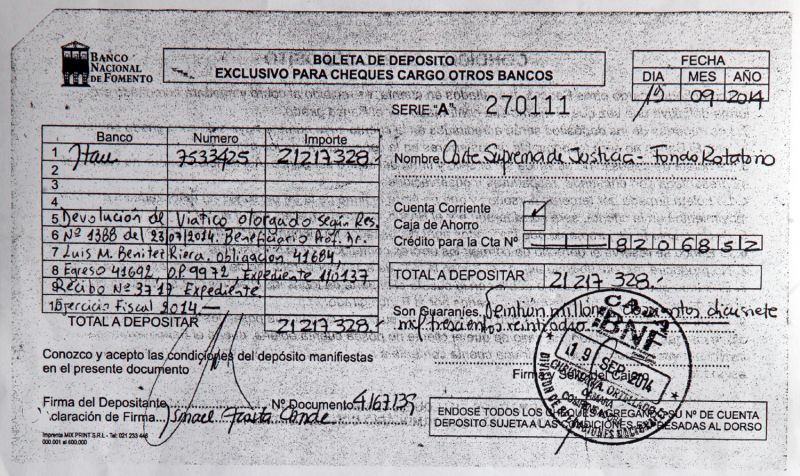 BANCO
NACIONAL
DE FOMENTO
BOLETA DE DEPOSITO
EXCLUSIVO PARA CHEQUES CARGO OTROS BANCOS
FECHA
DIA MES AÑO
19 09 2014
SERIE "A" 270111
Banco Número Importe
1 Itau 7533425 21217328.-
2
3
4
5 Devolución de Viatico otorgado según Res.
6 Nº 1388 del 23/07/2014. Beneficiario Prof. Dr.
7 Luis M. Benitez Riera. obligación 41684,
8 Egreso 41692 OP 9972, Expediente 110137
9 Recibo Nº 3717 Expediente
10 Ejercicio Fiscal 2014.-
TOTAL A DEPOSITAR 21217328.-
Nombre Corte Suprema de Justicia - Fondo Rotatorio
Cuenta Corriente ✓
Caja de Ahorro
Crédito para la Cta Nº 8206852
TOTAL A DEPOSITAR 21217328.-
Son Guaraníes, Veintiún millones doscientos diecisiete
mil trescientos veintiocho
BNF
19 SEP. 2014
Firma y Sello del Cajero
Conozco y acepto las condiciones del depósito manifiestas
en el presente documento
Firma del Depositante Nº Documento 4167139
claración de Firma
ENDOSE TODOS LOS CHEQUES AGREGANDO SU Nº DE CUENTA
DEPOSITO SUJETA A LAS CONDICIONES EXPRESADAS AL DORSO
Imprenta MIX PRINT S.R.L - Tel: 021 233 446
000.001 al 600.000